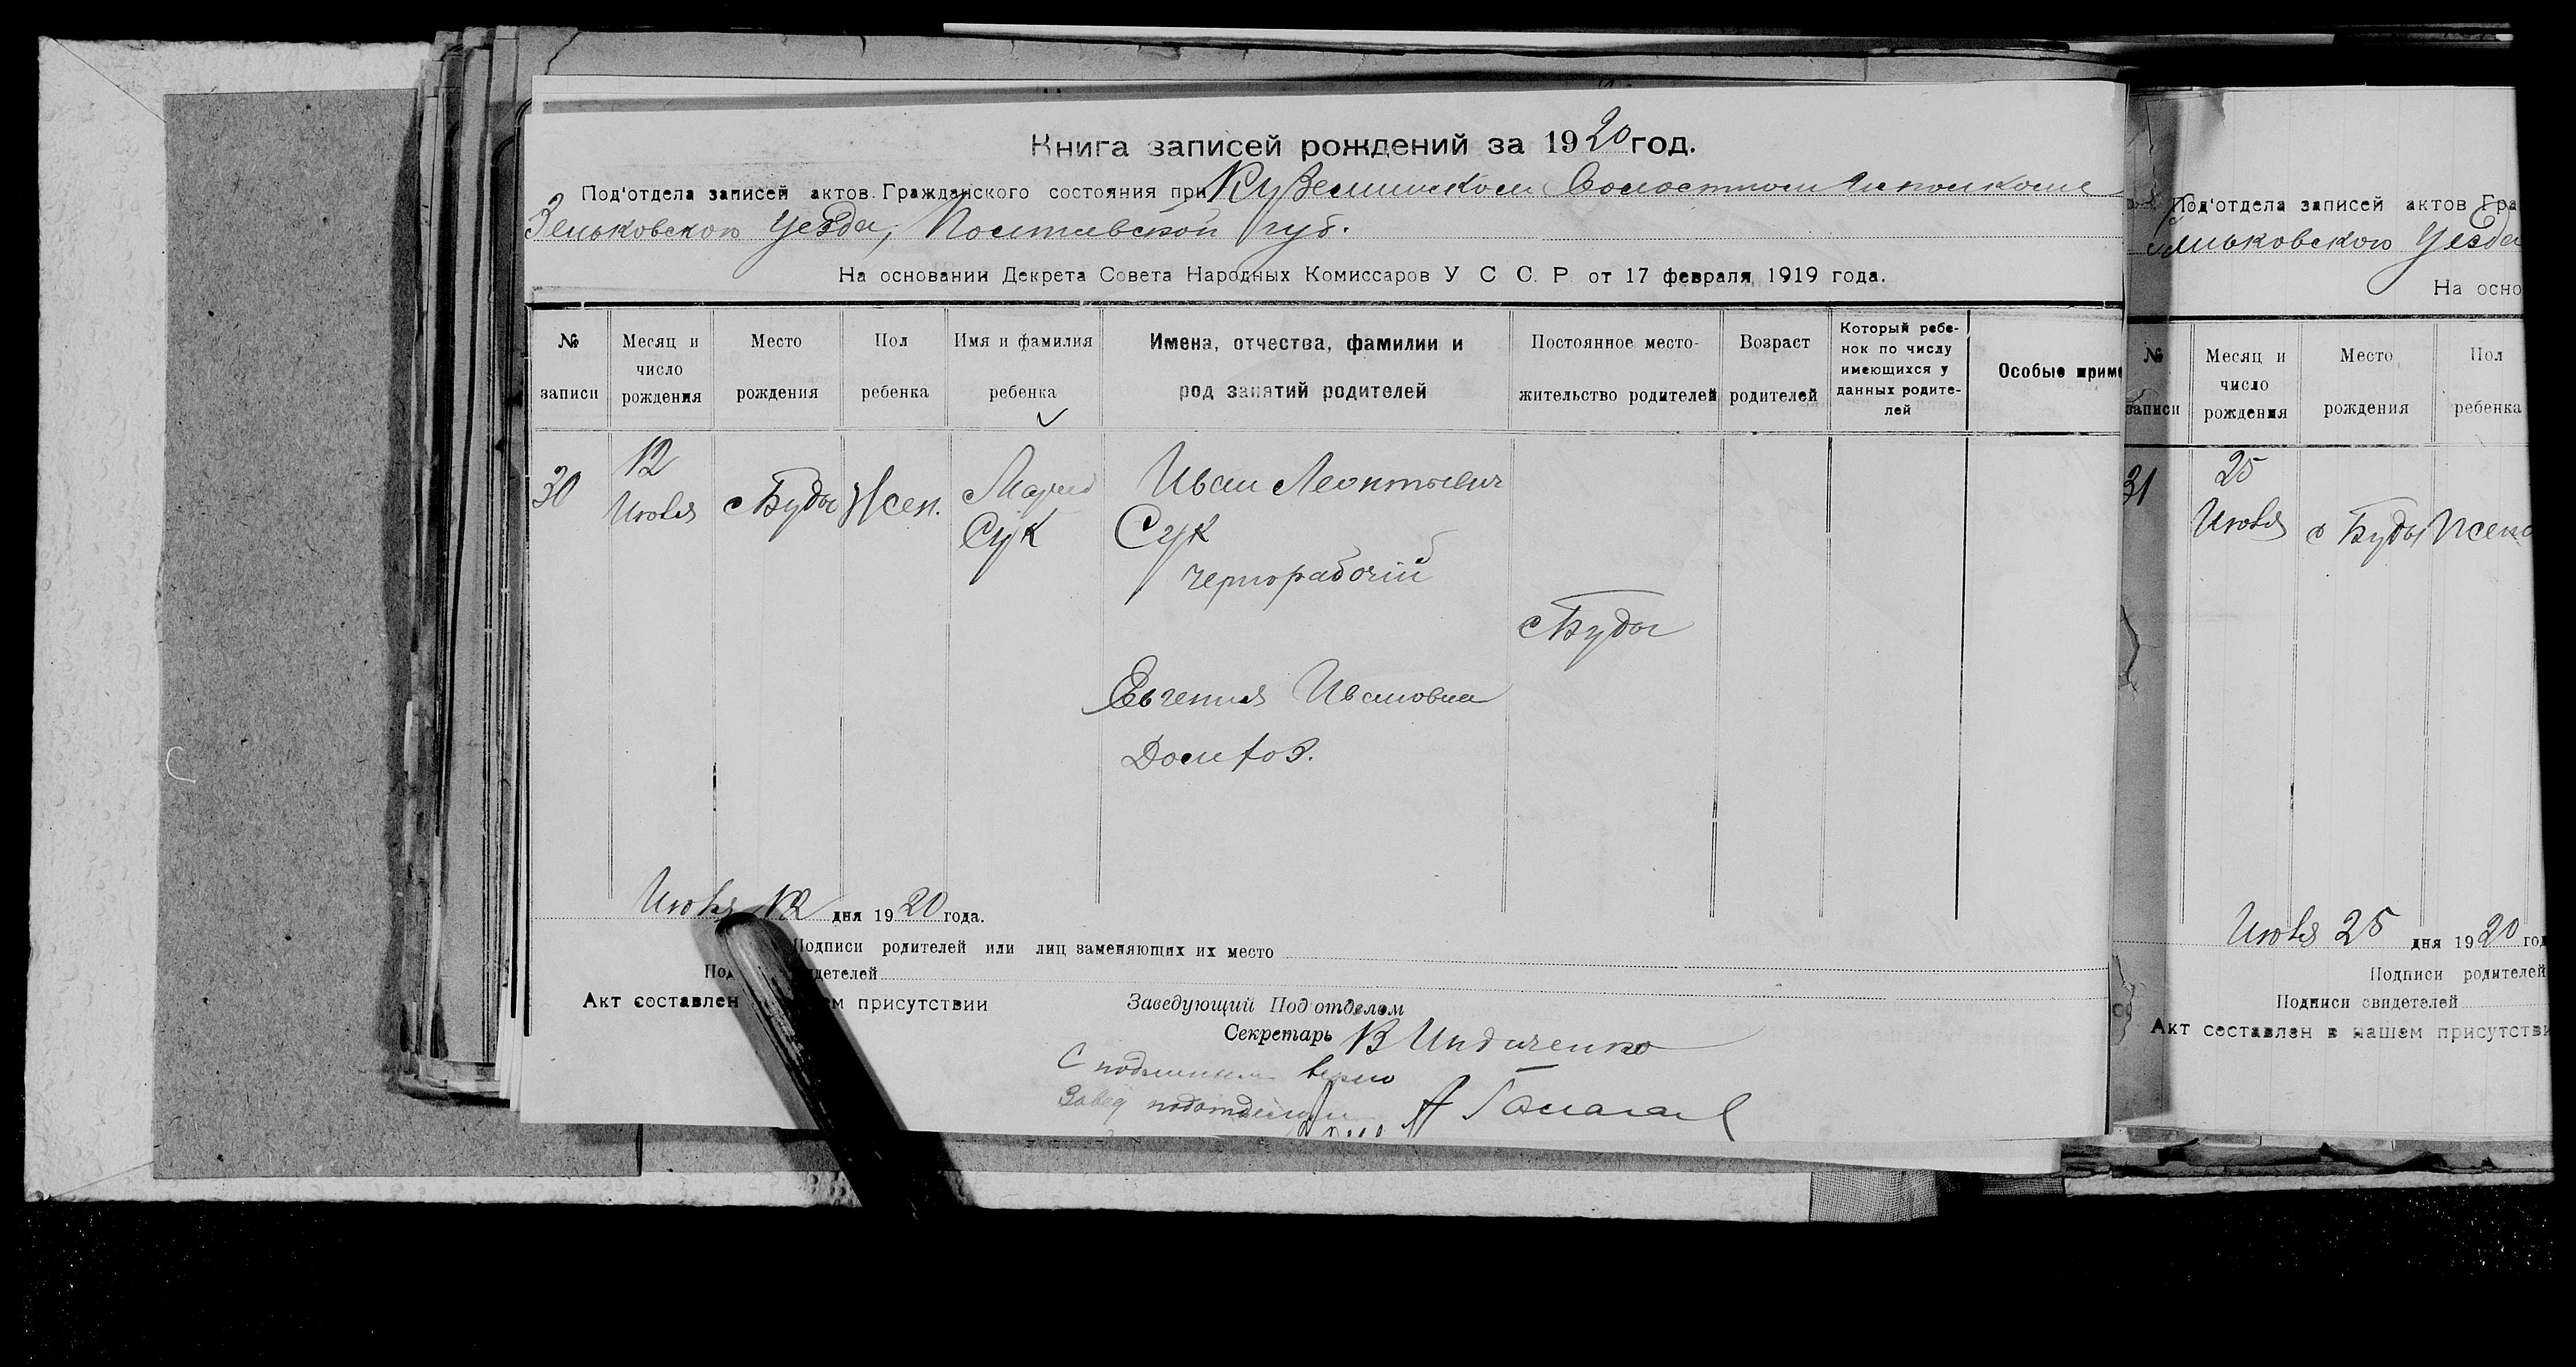 Книга записей рождений за 1920 год.
Под'отдела записей актов Гражданского состояния при Куземинском Волостном Исполкоме
Зеньковского Уезда, Полтавской губ.
На основании Декрета Совета Народных Комиссаров У С С. Р от 17 февраля 1919 года.
№ записи
Месяц и число рождения
Место рождения
Пол ребенка
Имя и фамилия ребенка
Имена, отчества, фамилии и род занятий родителей
Постоянное место-жительство родителей
Возраст родителей
Который ребе-нок по числу имеющихся у данных родите-лей
Особые приме
30
12 Июля
с Буды
Жен.
Мария Сук
Иван Леонтьевич
Сук
чернорабочій
с Буды
Евгения Ивановна
Домхоз.
Июля 12 дня 1920 года.
Подписи родителей или лиц заменяющих их место
Под детелей
Акт составлен ем присутствии
Заведующий Под'отделом
Секретарь В Индиченко
С подлинным верно
Завед подотделом
Под'отдела записей актов Гра
Зеньковского Уезда
На осно
№ записи
Месяц и число рождения
Место рождения
Пол ребенка
31
25 Июля
с Буды
Женс
Июля 25 дня 1920 год
Подписи родителей
Подписи свидетелей
Акт составлен в нашем присутстви